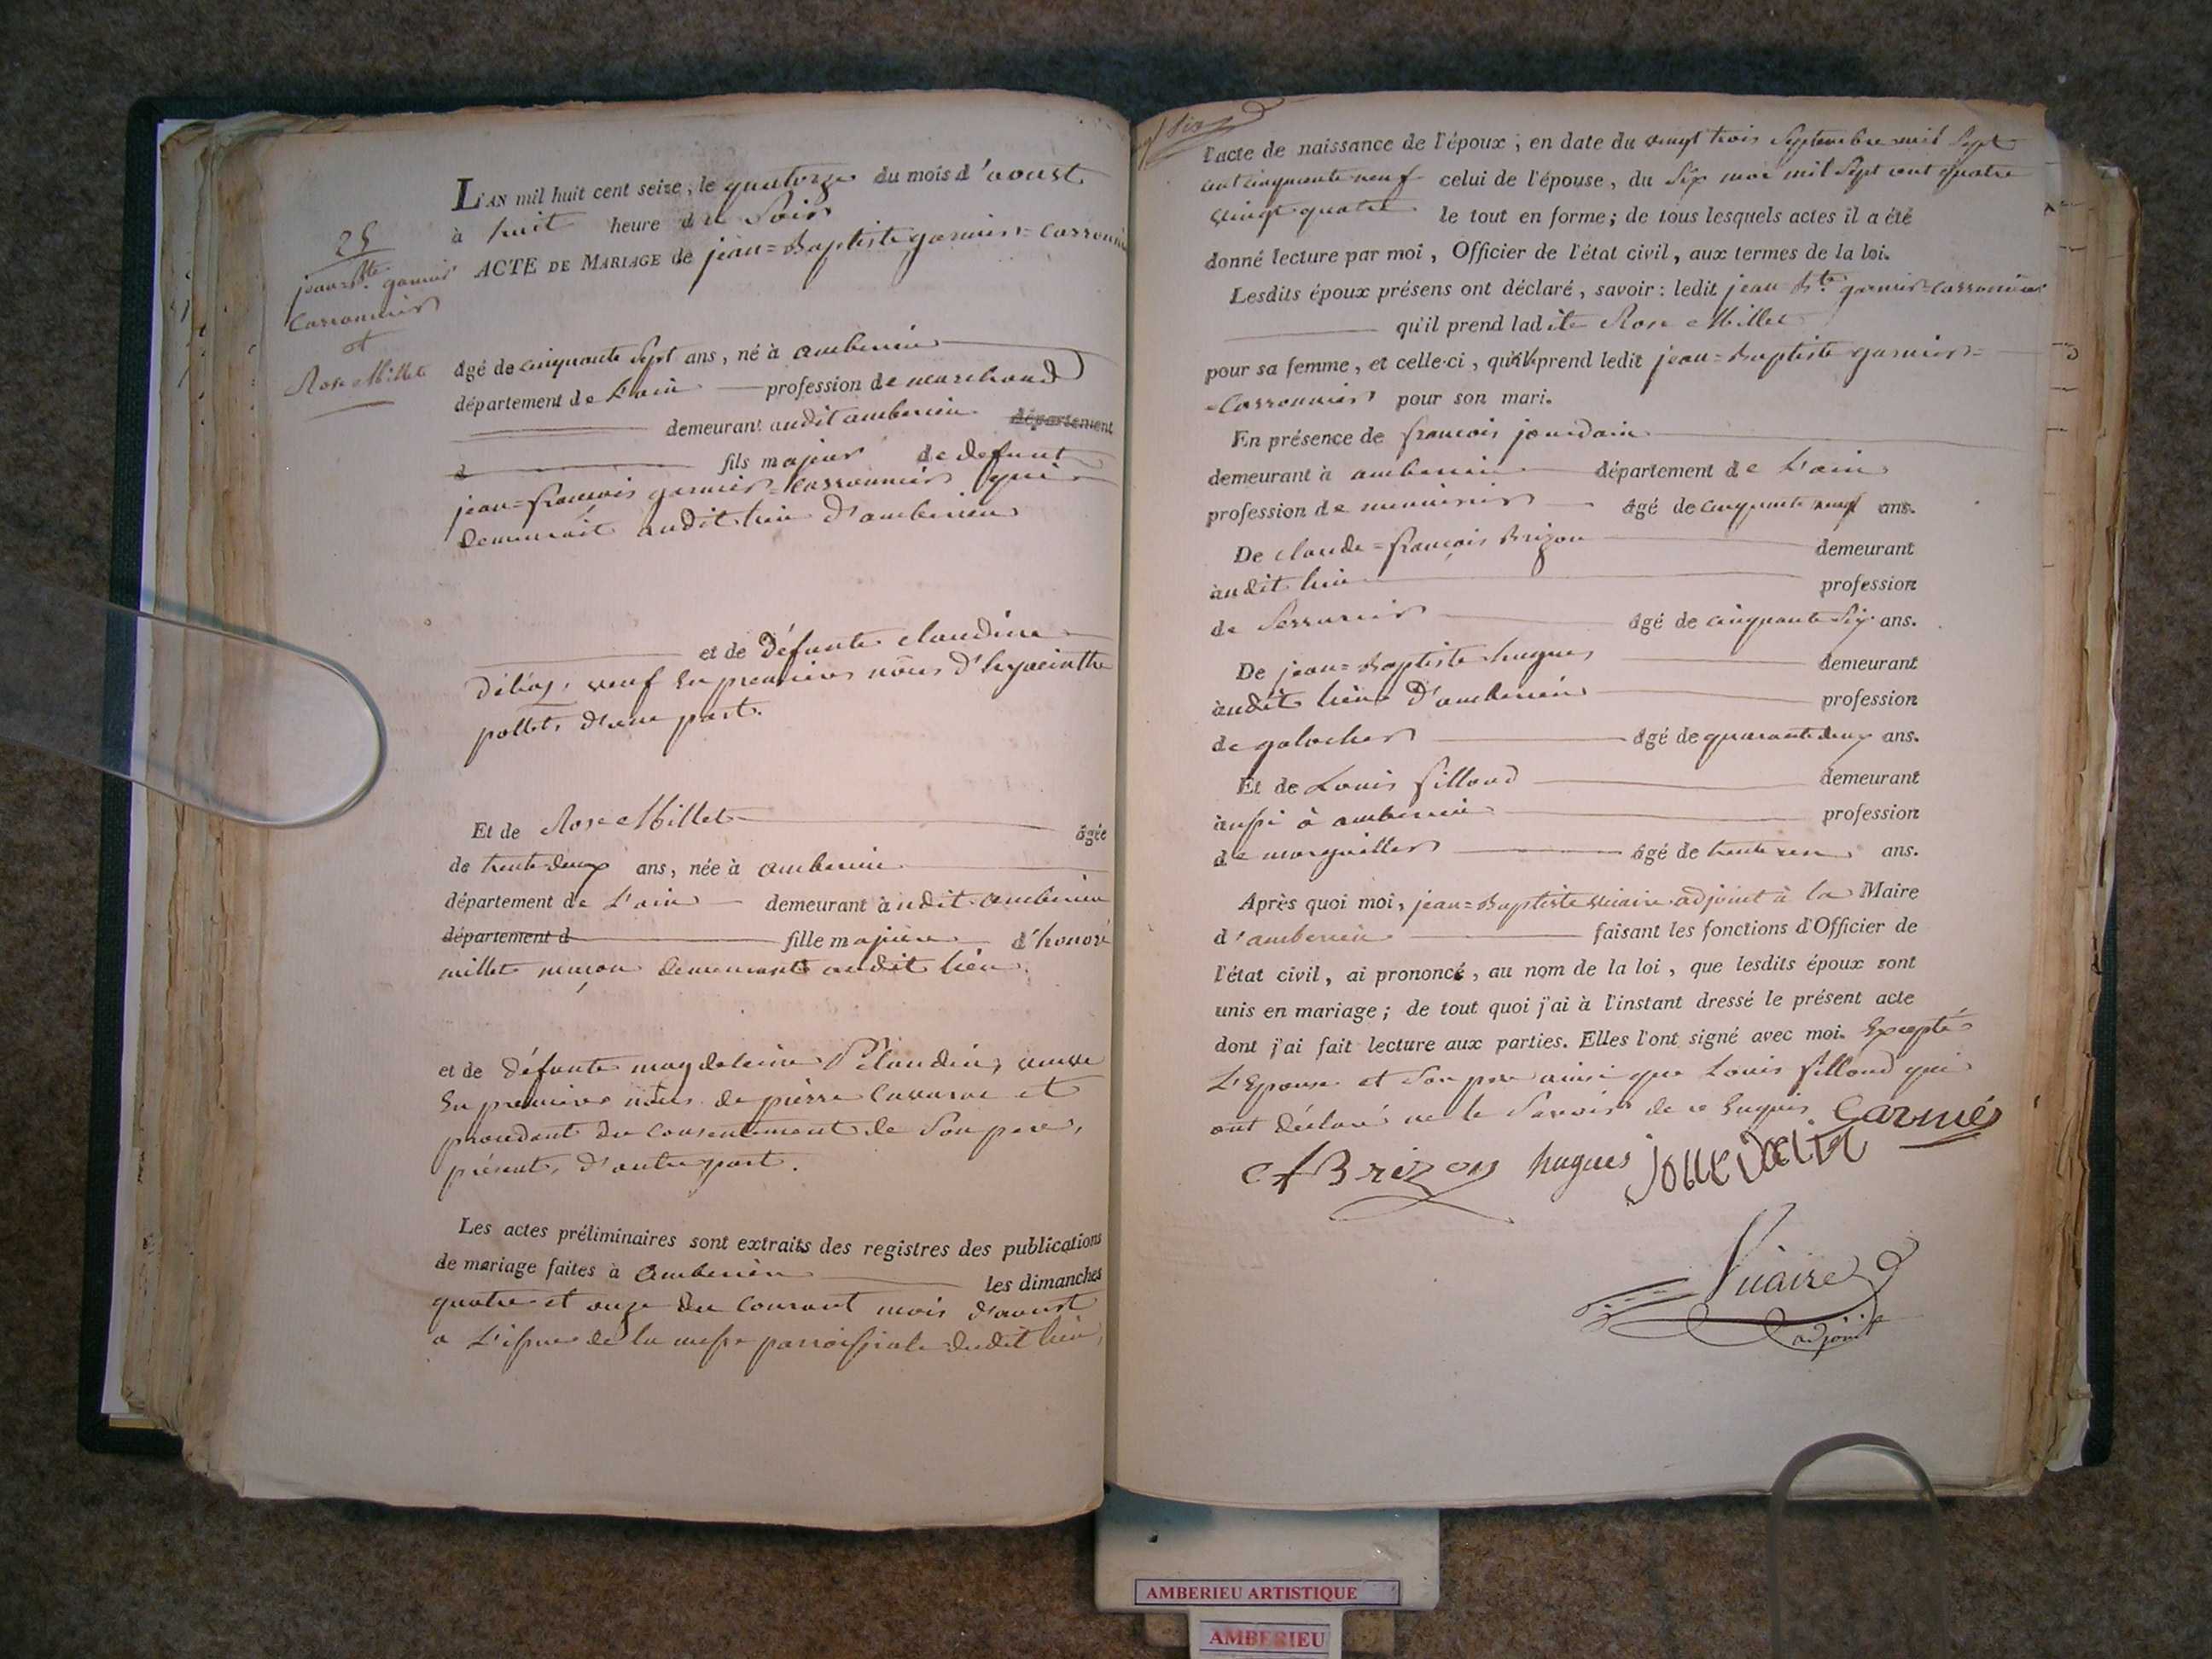 25
jean Bte. garnier
Carronnier
et
Rose Millet
L'AN mil huit cent seize, le quatorze du mois d'aoust
à huit heure du Soir
ACTE DE MARIAGE de jean=Baptiste garnier=Carronnier
âgé de cinquante Sept ans, né à amberieu
département de L'ain profession de marchand
demeurant audit amberieu département
d fils majeur de defunt
jean=françois garnier=Carronnier qui
demeurait audit lieu d'amberieu
et de défunte claudine
veuf En premieres nôces d'hyacinthe
pollet, d'une part.
Et de Rose Millet âgée
de trente deux ans, née à amberieu
département de L'ain demeurant àudit amberieu
département d fille majeure d'honoré
millet maçon demeurant audit lieu
et de défunte magdeleine veuve
En premieres nôces de pierre et
procedant du consentement de Son pere,
présent, d'autre part.
Les actes préliminaires sont extraits des registres des publications
de mariage faites à amberieu les dimanches
quatre et onze du Courant mois d'aoust
a L'issue de la messe parroissiale dudit lieu,
l'acte de naissance de l'époux, en date du vingt trois Septembre mil Sept
cent cinquante neuf celui de l'épouse, du Six mai mil Sept cent quatre
vingt quatre le tout en forme; de tous lesquels actes il a été
donné lecture par moi, Officier de l'état civil, aux termes de la loi.
Lesdits époux présens ont déclaré, savoir: ledit jean Bte. garnier=Carronnier
qu'il prend ladite Rose Millet
pour sa femme, et celle-ci, qu'elle prend ledit jean=Baptiste garnier=
=Carronnier pour son mari.
En présence de francois jourdain
demeurant à amberieu département de L'ain
profession de menuisier âgé de cinquante neuf ans.
De claude=françois Brizon demeurant
àudit lieu profession
de Serrurier âgé de cinquante Six ans.
De jean=Baptiste hugues demeurant
àudit lieu d'amberieu profession
de galocher âgé de quarante deux ans.
Et de Louis fillond demeurant
àussi à amberieu profession
de marguiller âgé de trente ans.
Après quoi moi, jean=Baptiste Vuaire adjoint à la Maire
d'amberieu faisant les fonctions d'Officier de
l'état civil, ai prononcé, au nom de la loi, que lesdits époux sont
unis en mariage; de tout quoi j'ai à l'instant dressé le présent acte
dont j'ai fait lecture aux parties. Elles l'ont signé avec moi. Excepté
L'Epouse et Son pere ainsi que Louis fillond qui
ont déclaré ne le Savoir de ce Enquis Garnier
Brizon hugues jourdain
Vuaire
adjoint
AMBERIEU ARTISTIQUE
AMBERIEU